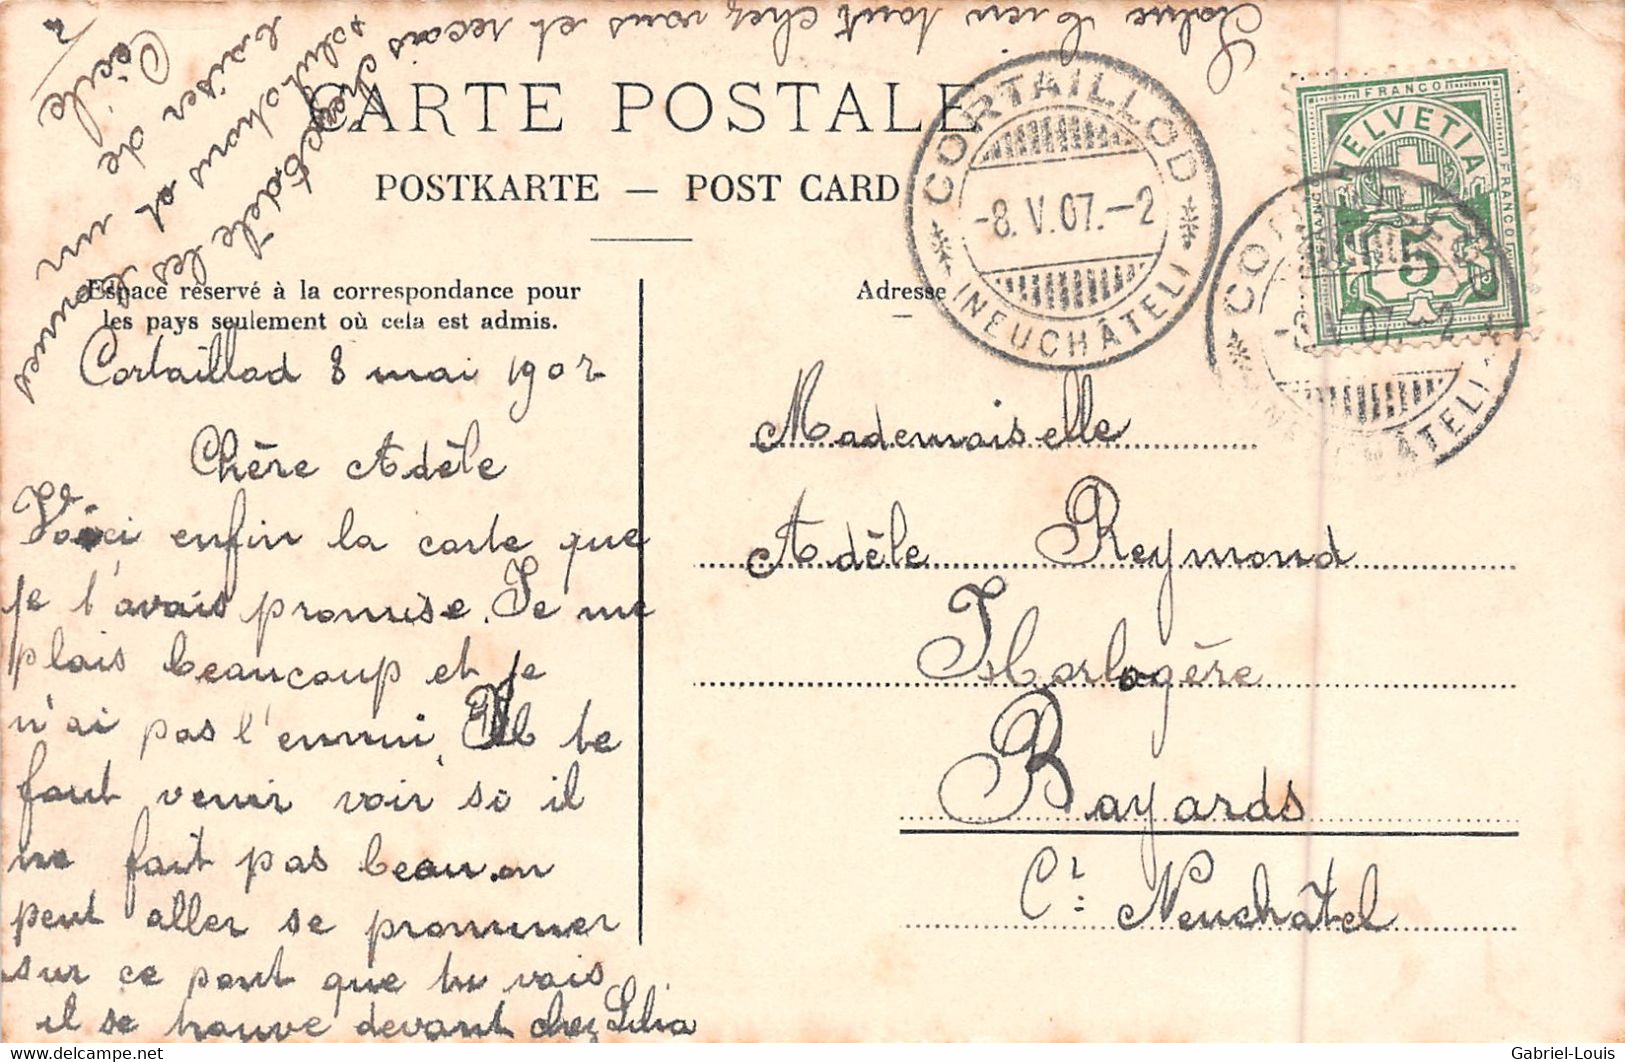 CARTE POSTALE
POSTKARTE — POST CARD
Espace réservé à la correspondance pour
les pays seulement où cela est admis.
Adresse
Cortaillod 8 mai 1907
Chère Adèle
Voici enfin la carte que
je l'avais promise. Je me
plais beaucoup et je
n'ai pas l'ennui. Il te
faut venir voir si il
ne fait pas beau. on
peut aller se promener
sur ce pont que tu vois
il se trouve devant chez Lelia
Salue bien tout chez vous et reçois
chère Adèle les bonnes
salutations et un
baiser de
Cécile
Mademoiselle
Adèle Reymond
Horlogère
Bayards
Ct: Neuchâtel
CORTAILLOD
-8.V.07.-2
(NEUCHÂTEL)
FRANCO
HELVETIA
FRANCO
FRANCO
5
CO
V.07.-2
CHÂTEL)
delcampe.net
Gabriel-Louis